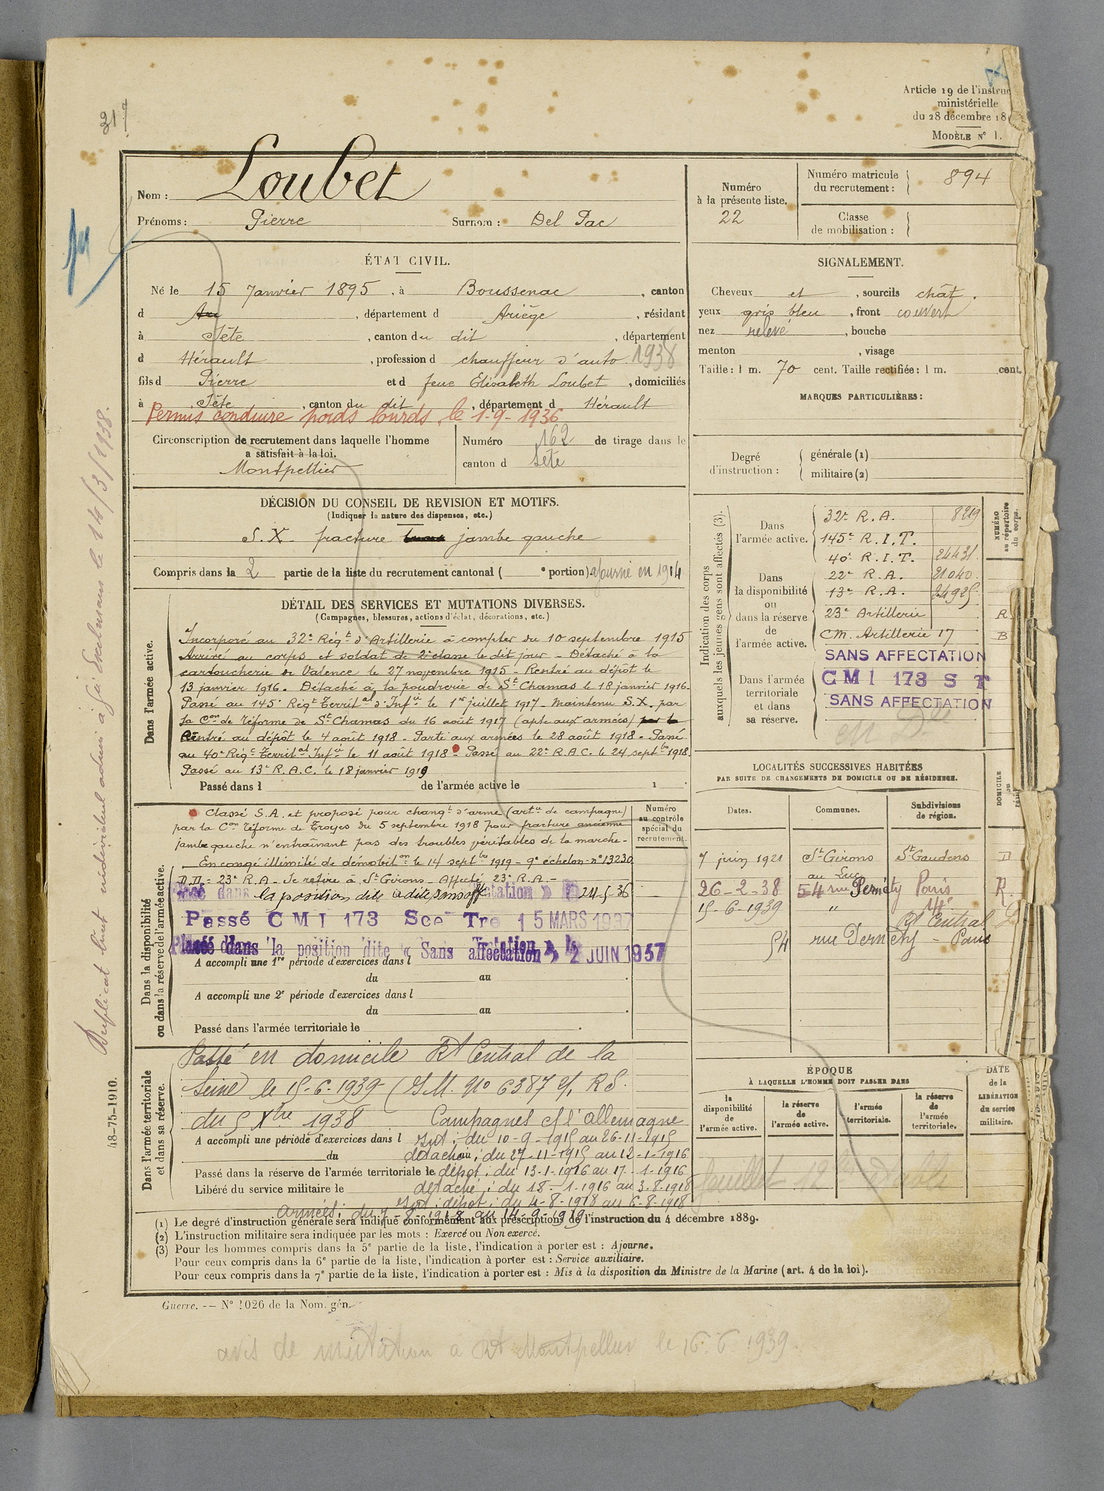 317
Article 19 de l'instruc
ministérielle
du 28 décembre 18
MODÈLE N° 1.
Nom : Loubet
Prénoms : Pierre Surnom : Del Pac
Numéro
à la présente liste.
22
Numéro matricule
du recrutement : 894
Classe
de mobilisation :
ÉTAT CIVIL.
Né le 15 Janvier 1895, à Boussenac, canton
d , département d Ariège, résidant
à Sète, canton du dit, département
d Hérault, profession d chauffeur d'auto. 1938
fils d Pierre et d feue Elisabeth Loubet, domiciliés
à Sète, canton du dit, département d Hérault
Permis conduire poids lourds, le 1-9-1936
Circonscription de recrutement dans laquelle l'homme
a satisfait à la loi.
Montpellier
Numéro 162 de tirage dans le
canton d Sète
SIGNALEMENT.
Cheveux et, sourcils chât.
yeux gris bleu, front couvert
nez relevé, bouche
menton , visage
Taille : 1 m. 70 cent. Taille rectifiée : 1 m. cent.
MARQUES PARTICULIÈRES :
Degré
d'instruction :
générale (1)
militaire (2)
DÉCISION DU CONSEIL DE REVISION ET MOTIFS.
(Indiquer la nature des dispenses, etc.)
S.X. fracture jambe gauche
Compris dans la 2 partie de la liste du recrutement cantonal ( e portion) ajourné en 1914
DÉTAIL DES SERVICES ET MUTATIONS DIVERSES.
(Campagnes, blessures, actions d'éclat, décorations, etc.)
Dans l'armée active.
Incorporé au 32e Régt d'Artillerie à compter du 10 septembre 1915
Arrivé au corps et soldat de 2e classe le dit jour - Détaché à la
cartoucherie de Valence le 27 novembre 1915 - Rentré au dépôt le
13 janvier 1916. Détaché à la poudrerie de St Chamas le 18 janvier 1916.
Passé au 145e Régt Territal d'Infie le 1er juillet 1917. Maintenu S.X. par
la Con de réforme de St Chamas du 16 août 1917 (apte aux armées)
Rentré au dépôt le 4 août 1918 - Parti aux armées le 28 août 1918 - Passé
au 40e Régt Territal Infie le 11 août 1918 Passé au 22e R.A.C. le 24 septbre 1918.
Passé au 13e R.A.C. le 18 janvier 1919
Passé dans l de l'armée active le 1
Indication des corps
auxquels les jeunes gens sont affectés (3).
Dans
l'armée active.
Dans
la disponibilité
ou
dans la réserve
de
l'armée active.
Dans l'armée
territoriale
et dans
sa réserve.
32e R.A. 8219
145e R.I.T.
40e R.I.T. 24431
22e R.A. 21040
13e R.A. 24925
23e Artillerie R
CM. Artillerie 17 B
SANS AFFECTATION
CMI 173 ST
SANS AFFECTATION
NUMÉRO
au répertoire
du corps.
Numéro
au contrôle
spécial du
recrutement.
Dans la disponibilité
ou dans la réserve de l'armée active.
Classé S.A. et proposé pour changt d'arme (artie de campagne)
par la Con réforme de Troyes du 5 septembre 1918 pour fracture ancienne
jambe gauche n'entraînant pas des troubles véritables de la marche.
En congé illimité de démobilon le 14 septbre 1919 - 9e échelon - n° 13230
D.D. = 23e R.A - Se retire à St Girons - Affecté 23e R.A. -
la position dite 24-5-36
Passé CMI 173 Sce Tre 15 MARS 1937
Placé dans la position dite « Sans affectation » le 2 JUIN 1957
A accompli une 1re période d'exercices dans l
du au .
A accompli une 2e période d'exercices dans l
du au .
Passé dans l'armée territoriale le .
LOCALITÉS SUCCESSIVES HABITÉES
PAR SUITE DE CHANGEMENTS DE DOMICILE OU DE RÉSIDENCE.
Dates. Communes. Subdivisions
de région.
DOMICILE
7 juin 1921 St Girons St Gaudens D
26-2-38 54 rue Pernety Paris R
15-6-1939 " Rt Central
54 rue Pernety - Paris
Dans l'armée territoriale
et dans sa réserve.
Passé en domicile Rt Central de la
Seine le 15-6-1939 (I.M. N° 6387 RS.
du 5 Xbre 1938 Campagnes c/ l'Allemagne
A accompli une période d'exercices dans l int : du 10-9-1915 au 26-11-1915
du détaché : du 27-11-1915 au 12-1-1916
Passé dans la réserve de l'armée territoriale le dépôt : du 13-1-1916 au 17-1-1916
Libéré du service militaire le détaché : du 18-1-1916 au 3-8-1918
int : dépôt : du 4-8-1918 au 6-8-1918
armées : du 7-8-1918 au 14-9-1919
ÉPOQUE
À LAQUELLE L'HOMME DOIT PASSER DANS
la
disponibilité
de
l'armée active.
la réserve
de
l'armée active.
l'armée
territoriale.
la réserve
de
l'armée
territoriale.
DATE
de la
LIBÉRATION
du service
militaire.
(1) Le degré d'instruction générale sera indiqué conformément aux prescriptions de l'instruction du 4 décembre 1889.
(2) L'instruction militaire sera indiquée par les mots : Exercé ou Non exercé.
(3) Pour les hommes compris dans la 5e partie de la liste, l'indication à porter est : Ajourné.
Pour ceux compris dans la 6e partie de la liste, l'indication à porter est : Service auxiliaire.
Pour ceux compris dans la 7e partie de la liste, l'indication à porter est : Mis à la disposition du Ministre de la Marine (art. 4 de la loi).
Guerre. — N° 1026 de la Nom. gén.
avis de mutation à Rt Montpellier le 16.6.1939.
48-75-1910.